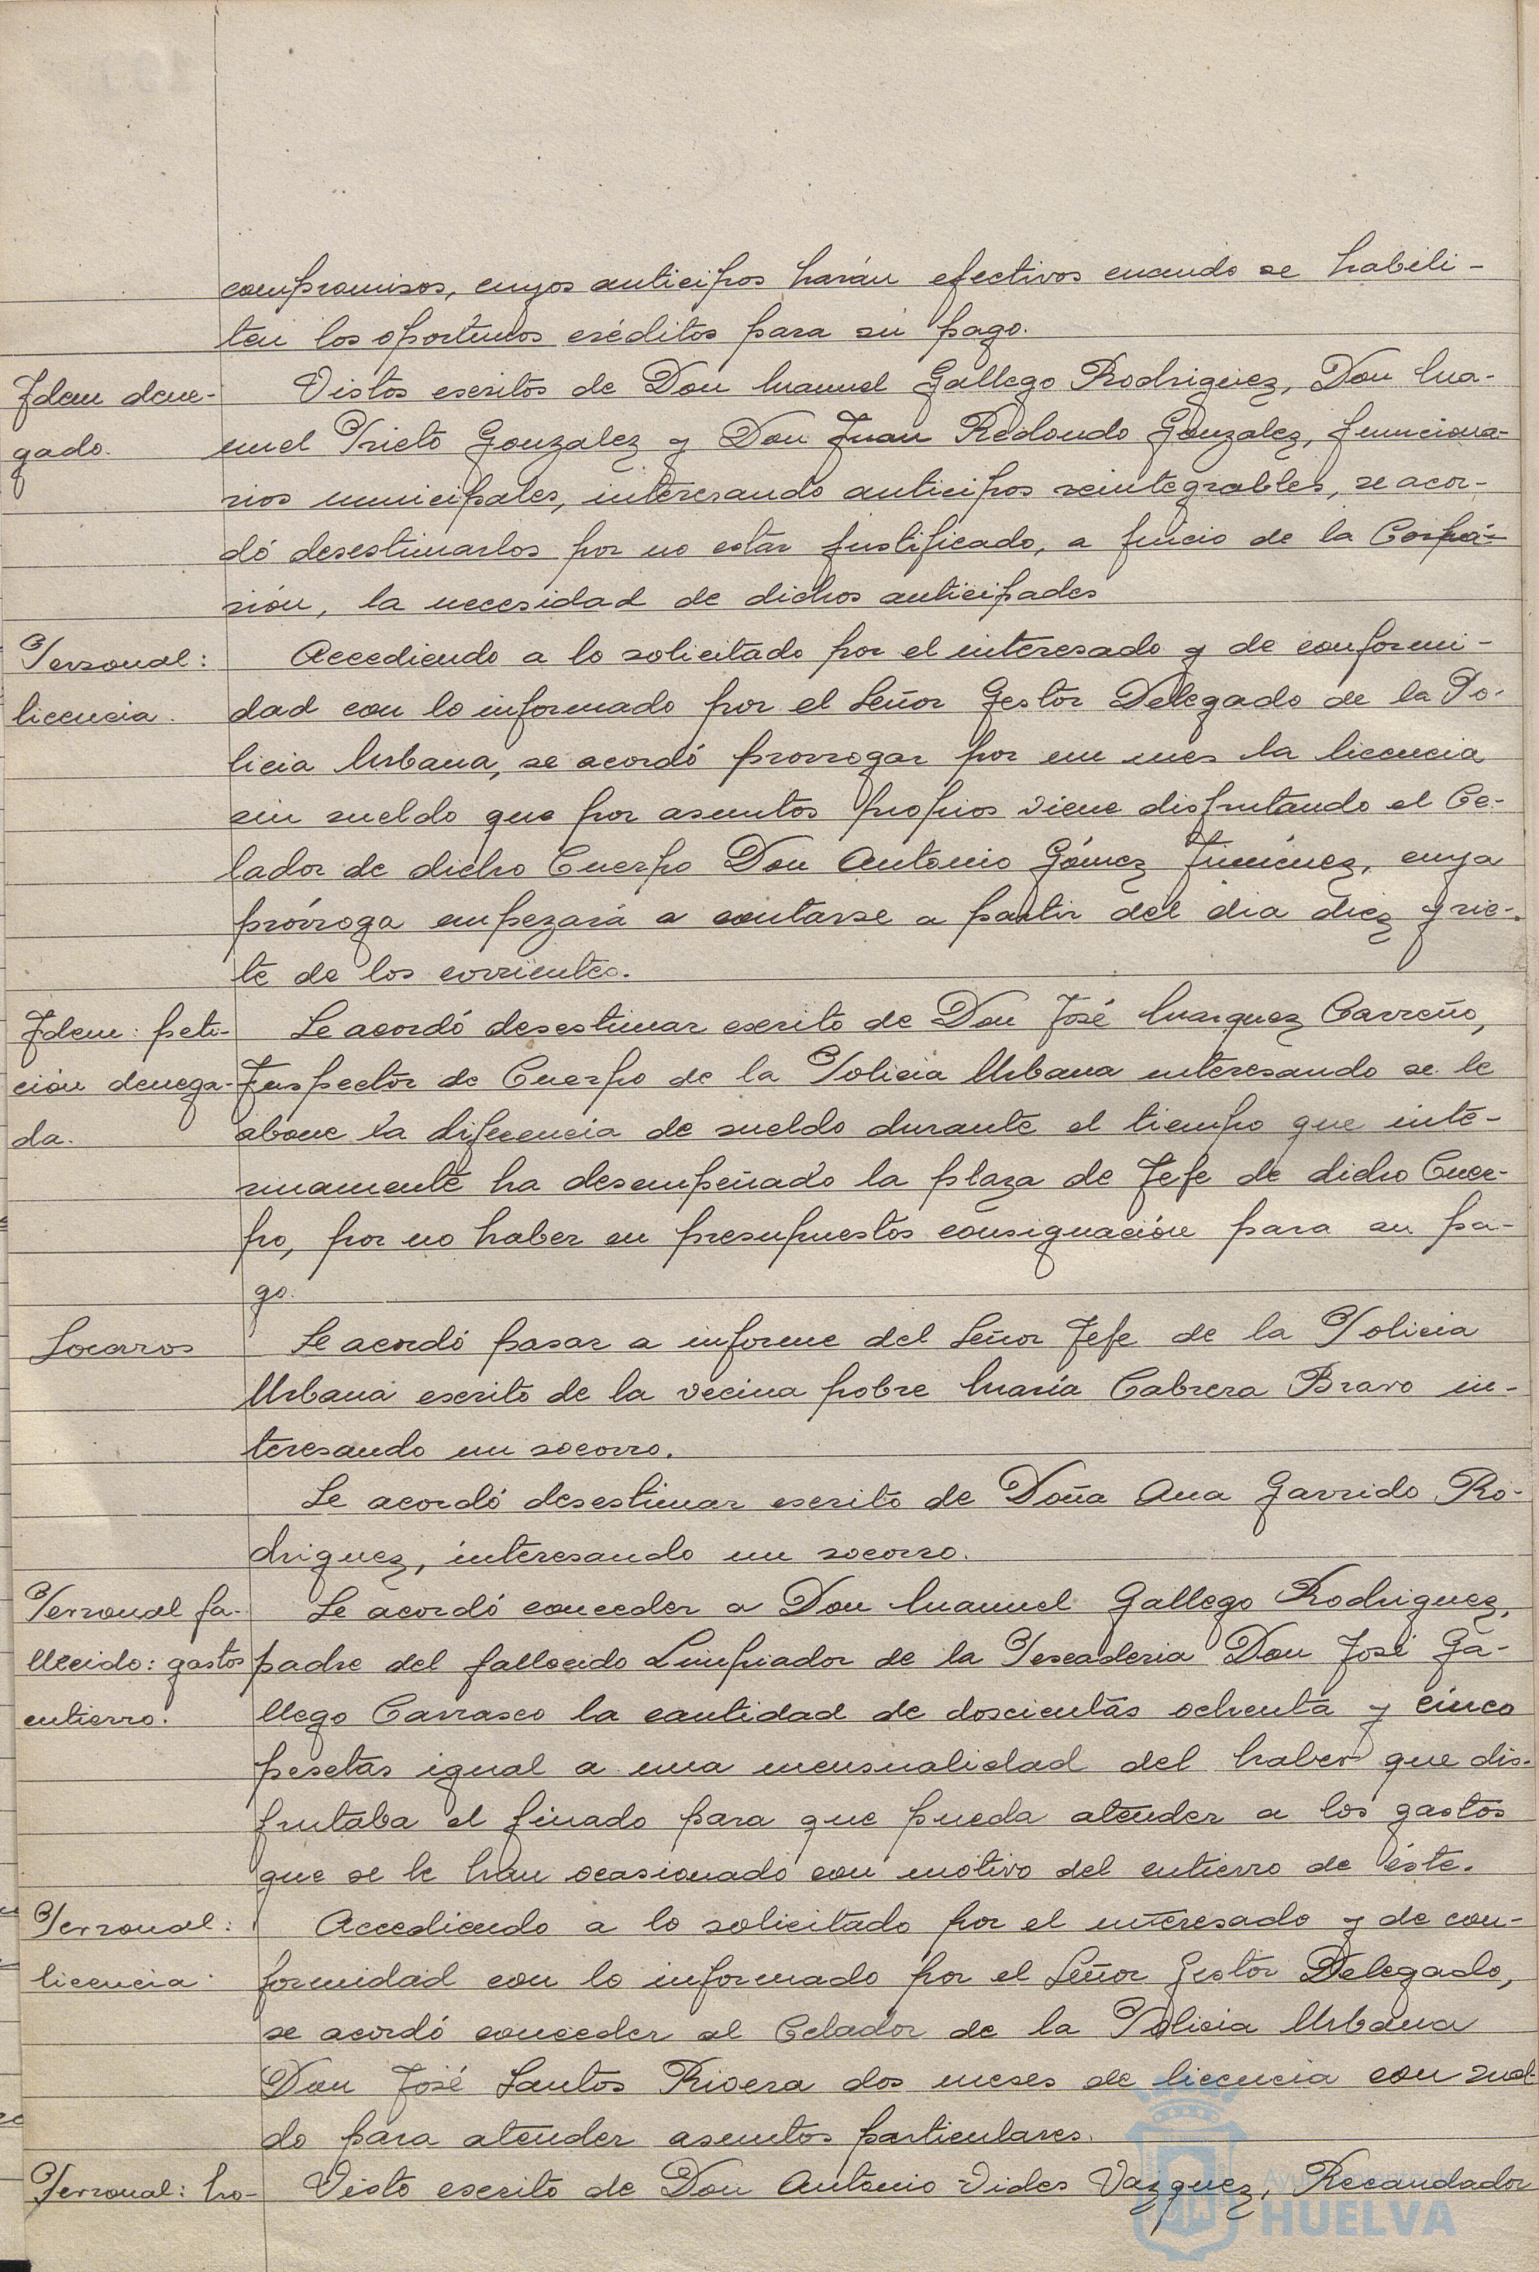 compromisos, cuyos anticipos harán efectivos cuando se habili-
ten los oportunos créditos para su pago.
Idem dene-
gado.
Vistos escritos de Don Manuel Gallego Rodriguez, Don Ma-
nuel Prieto Gonzalez y Don Juan Redondo Gonzalez, funciona-
rios municipales, interesando anticipos reintegrables, se acor-
dó desestimarlos por no estar justificado, a juicio de la Corpo-
sión, la necesidad de dichos anticipades
Personal:
licencia.
Accediendo a lo solicitado por el interesado y de conformi-
dad con lo informado por el Señor Gestor Delegado de la Po-
licia Urbana, se acordó prorrogar por un mes la licencia
sin sueldo que por asuntos propios viene disfrutando el Ce-
lador de dicho Cuerpo Don Antonio Gómez Jiménez, cuya
prórroga empezará a contarse a partir del dia diez y sie-
te de los corrientes.
Idem: peti-
ción denega-
da.
Se acordó desestimar escrito de Don José Marquez Carreño,
Inspector de Cuerpo de la Policia Urbana interesando se le
abone la diferencia de sueldo durante el tiempo que inte-
rinamente ha desempeñado la plaza de Jefe de dicho Cuer-
po, por no haber en presupuestos consignación para su pa-
go.
Socorros
Se acordó pasar a informe del Señor Jefe de la Policia
Urbana escrito de la vecina pobre María Cabrera Bravo in-
teresando un socorro.
Se acordó desestimar escrito de Doña Ana Garrido Ro-
driguez, interesando un socorro.
Personal fa-
llecido: gastos
entierro.
Se acordó conceder a Don Manuel Gallego Rodriguez,
padre del fallecido Limpiador de la Pescaderia Don José Ga-
llego Carrasco la cantidad de doscientas ochenta y cinco
pesetas igual a una mensualidad del haber que dis-
frutaba el finado para que pueda atender a los gastos
que se le han ocasionado con motivo del entierro de éste.
Personal:
licencia.
Accediendo a lo solicitado por el interesado y de con-
formidad con lo informado por el Señor Gestor Delegado,
se acordó conceder al Celador de la Policia Urbana
Don José Santos Rivera dos meses de licencia con suel-
do para atender asuntos particulares.
Personal: ho-
Visto escrito de Don Antonio Vides Vazquez, Recaudador
Ayuntamiento
HUELVA